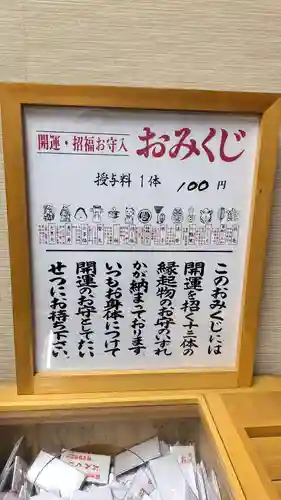 開運・招福お守入
おみくじ
授与料 1体 100円
このおみくじには
開運を招く十三体の
縁起物のお守のいずれ
かが納まっております
いつもお身体につけて
開運のお守としてたい
せつにお持ち下さい。